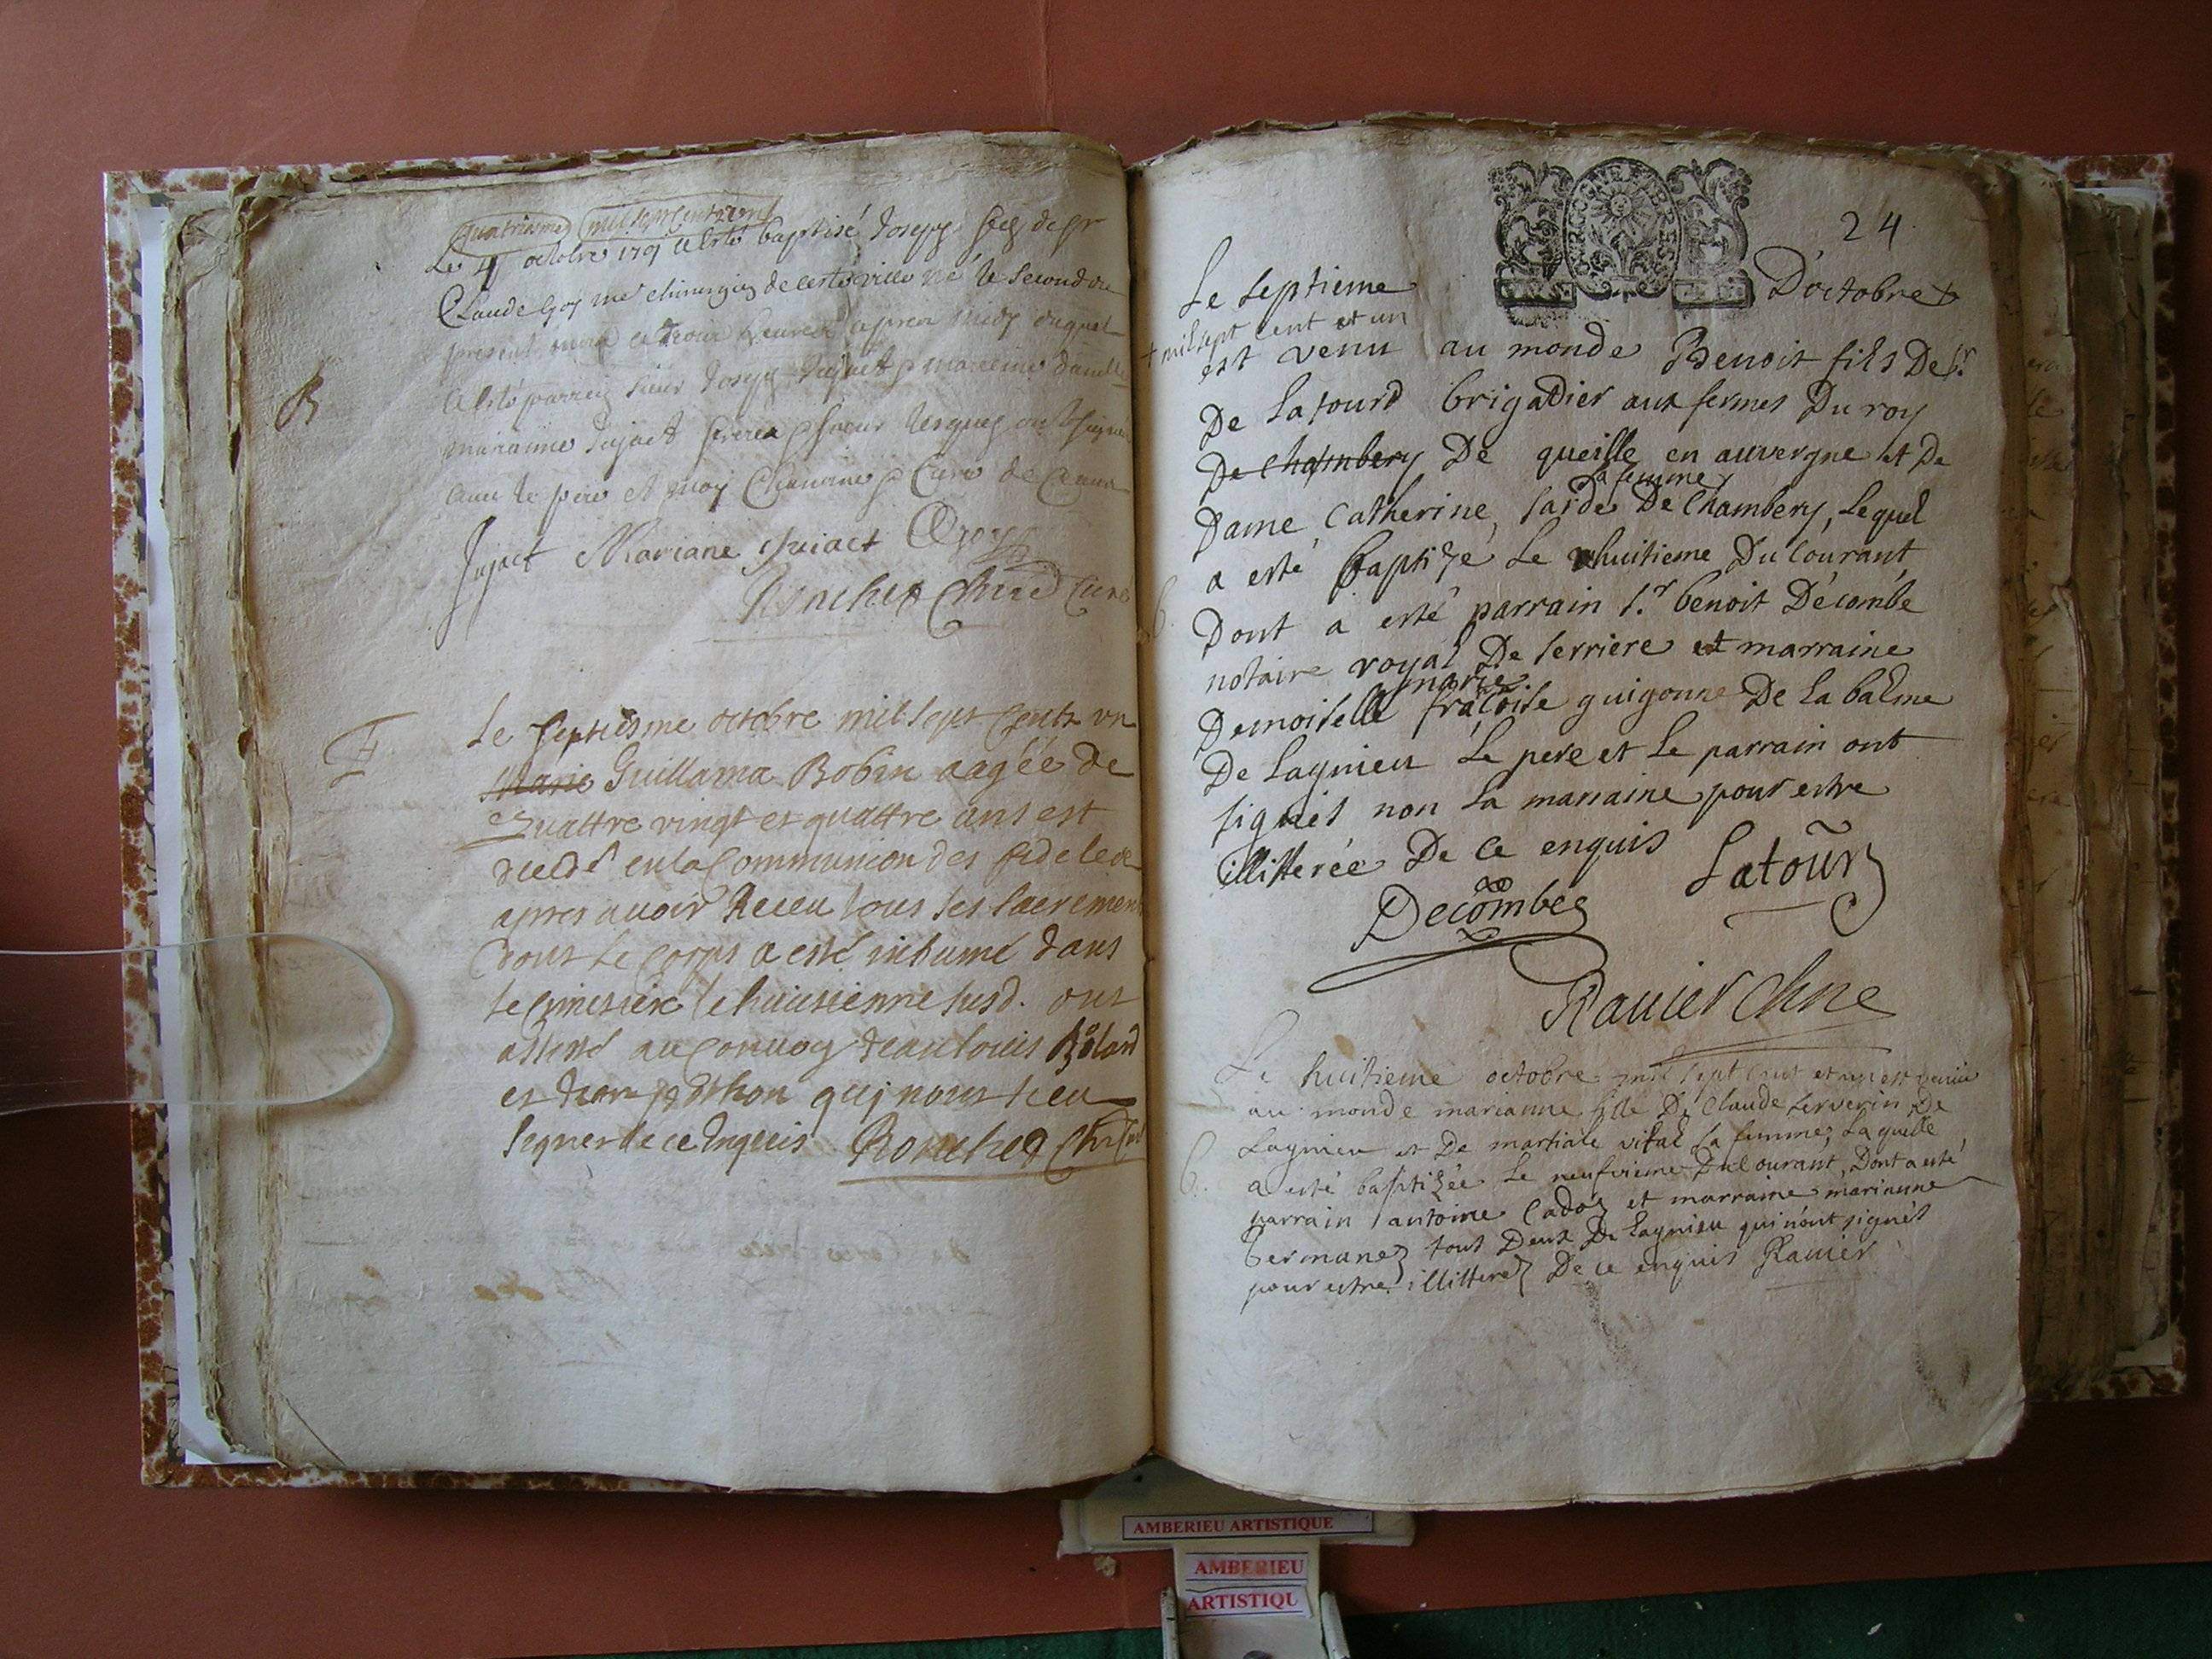 quatriesme mil sept cent et un
Le 4 octobre 1701 a esté baptisé Joseph fils de sr
Claude Goy me chirurgien de ceste ville né le second du
present mois à trois heures apres midy duquel
a esté parrein sieur Joseph Jujact & marreine damlle
marianne Jujact frere & soeur lesquels ont signé
avec le pere et moy Chanoine & Curé
B
Jujact Mariane Jujact Goy
Ronchet Chne Curé
Le septiesme octobre mil sept cents un
Marie Guillama Robin aagée de
quattre vingt et quattre ans est
en la Communion des fideles
apres avoir Receu tous ses sacremen
dont le corps a esté inhumé dans
le cimetiere le huitienne susd. ont
assisté au convoy Jean louis
et qui nont sceu
signer de ce Enquis Ronchet Chne
24
Le septieme D'octobre +
+ mil sept cent et un
est venu au monde Benoit fils De sr.
De Latour brigadier aux fermes Du roy
De Chambery De queille en auvergne et De
sa femme
Dame Catherine sarde De Chambery, lequel
a esté baptizé Le huitieme Du Courant
Dont a esté parrain sr. benoit Decombe
notaire royal De serriere et marraine
marie
Demoiselle fracoise guigonne De la balme
De Lagnieu Le pere et Le parrain ont
signés non La marraine pour estre
illitterée De ce enquis Latour
Decombes
Ravier Chne
Le huitieme octobre mil sept cent et un est venüe
au monde marianne fille De Claude serverin De
Lagnieu et De martiale vital sa femme, Laquelle
6.
a esté baptizée Le neufvieme Du Courant, Dont a esté
parrain antoine Cadoz et marraine marianne
Germanez tous Deux De Lagnieu qui n'ont signés
pour estre illitterez De ce enquis Ravier
AMBERIEU ARTISTIQUE
AMBERIEU
ARTISTIQU